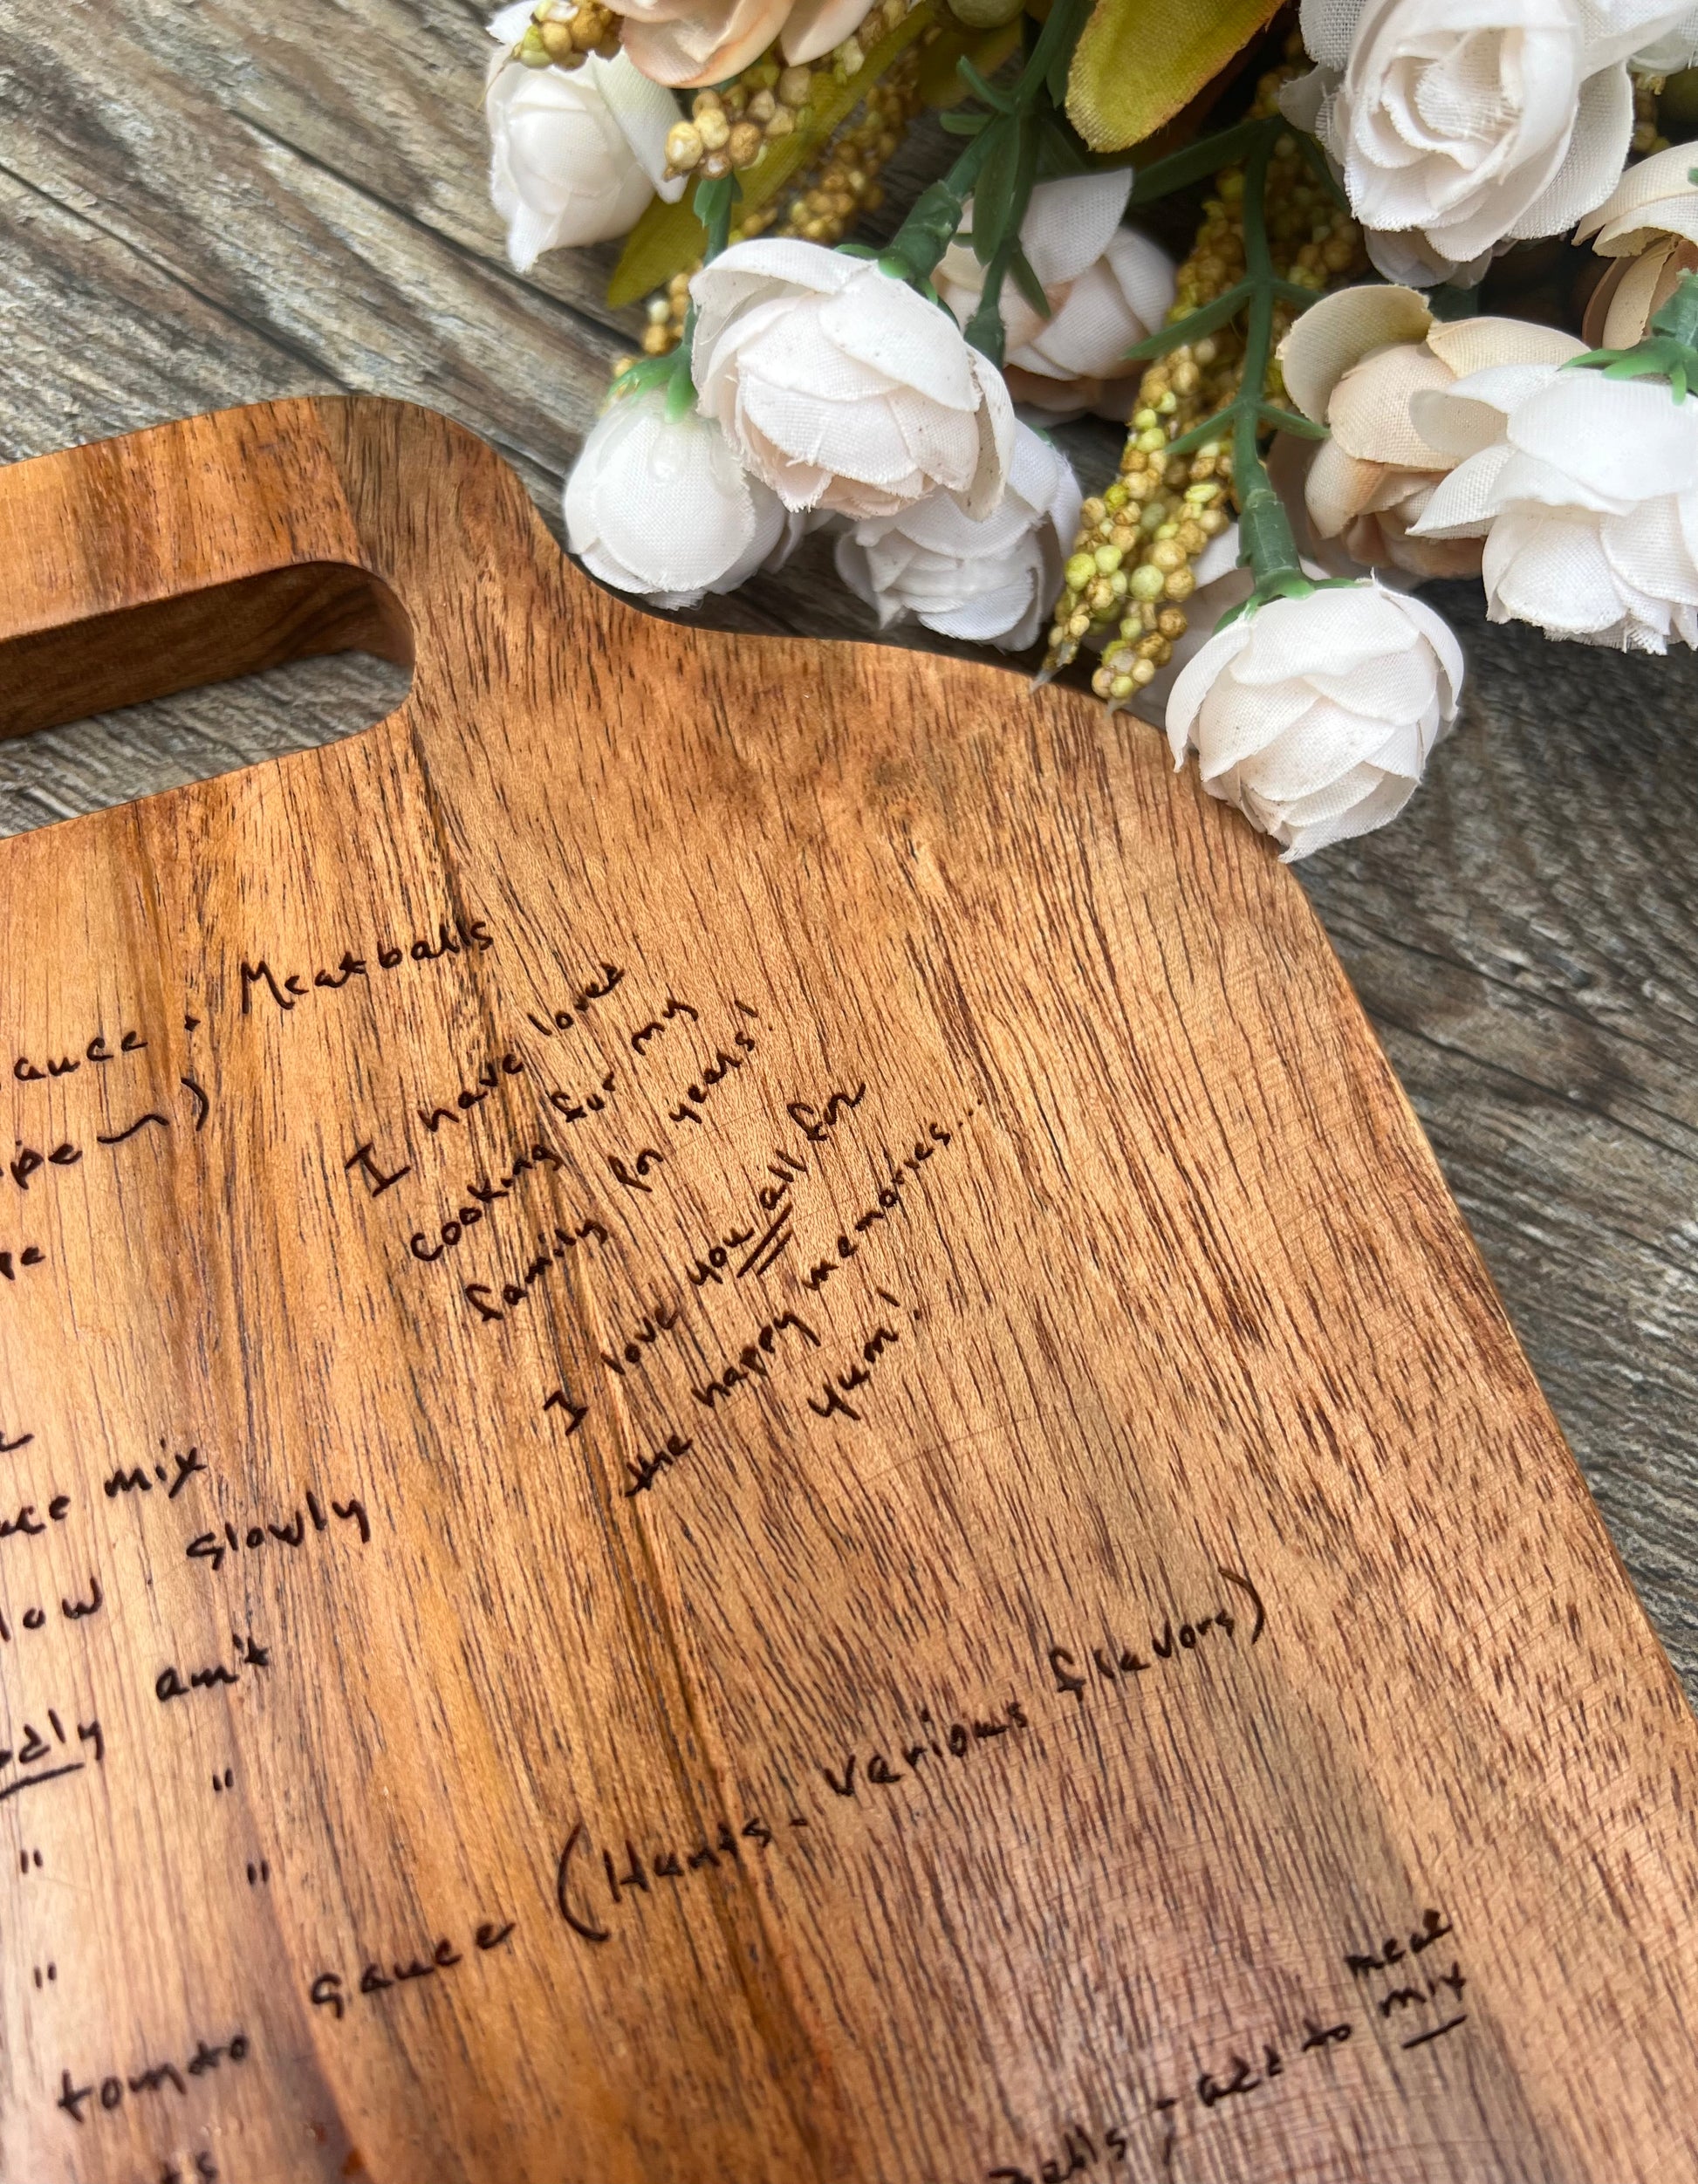 auce + Meatballs
pe
I have loved
cooking for my
family for years!
I love you all for
the happy memories...
yum!
mix
low slowly
am't
"
" "
"
tomato sauce (Hunts - various flavors)
- add to meat
mix